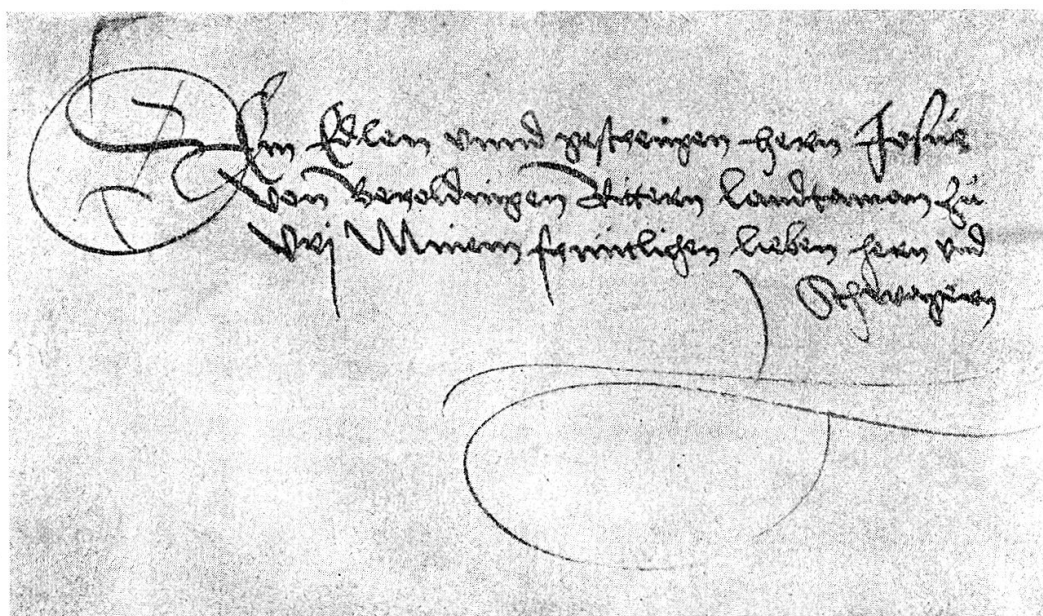 Dem Edlen vnnd gestrengen hern Josúe
von Beroldingen Rittern Landtaman zú
Vrj Minem früntlichen lieben hern vnd
Schwagern